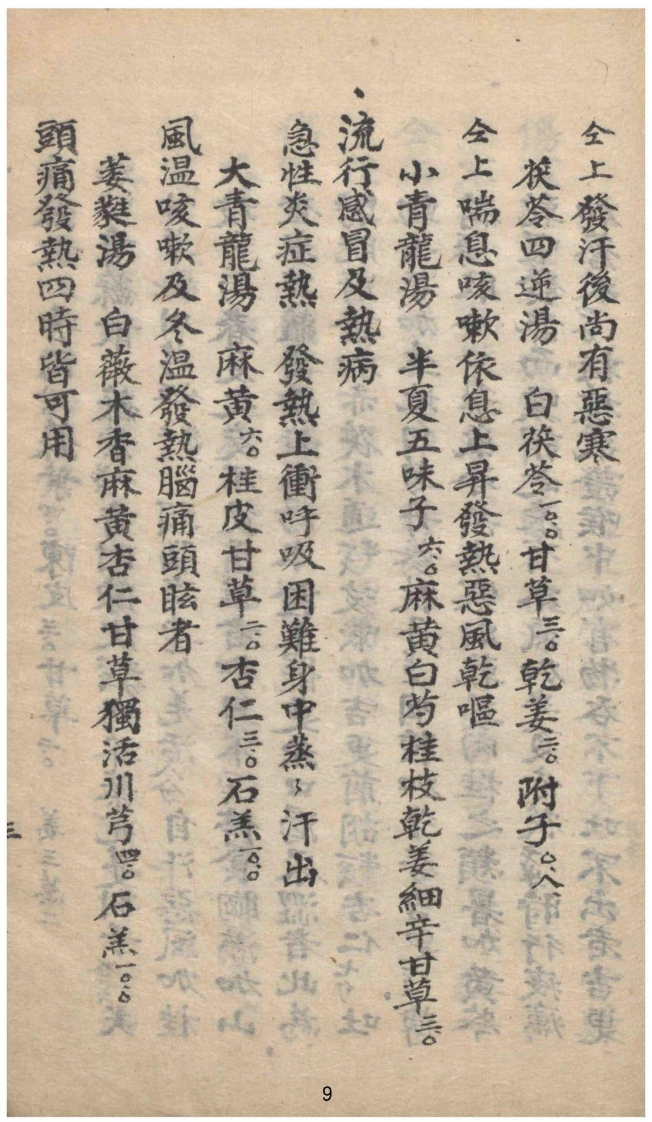 仝上發汗後尚有惡寒
茯苓四逆湯 白茯苓一〇、〇甘草三、〇乾姜二、〇附子〇、八
仝上喘息咳嗽依息上昇發熱惡風乾嘔
小青龍湯 半夏五味子六、〇麻黄白芍桂枝乾姜細辛甘草三、〇
流行感冒及熱病
急性炎症熱 發熱上衝呼吸困難身中蒸〻汗出
大青龍湯 麻黄六、〇桂皮甘草二、〇杏仁三、〇石羔一〇、〇
風温咳嗽及冬温發熱腦痛頭眩者
萎蕤湯 白薇木香麻黄杏仁甘草獨活川芎四、〇石羔一〇、〇
頭痛發熱四時皆可用
三
9